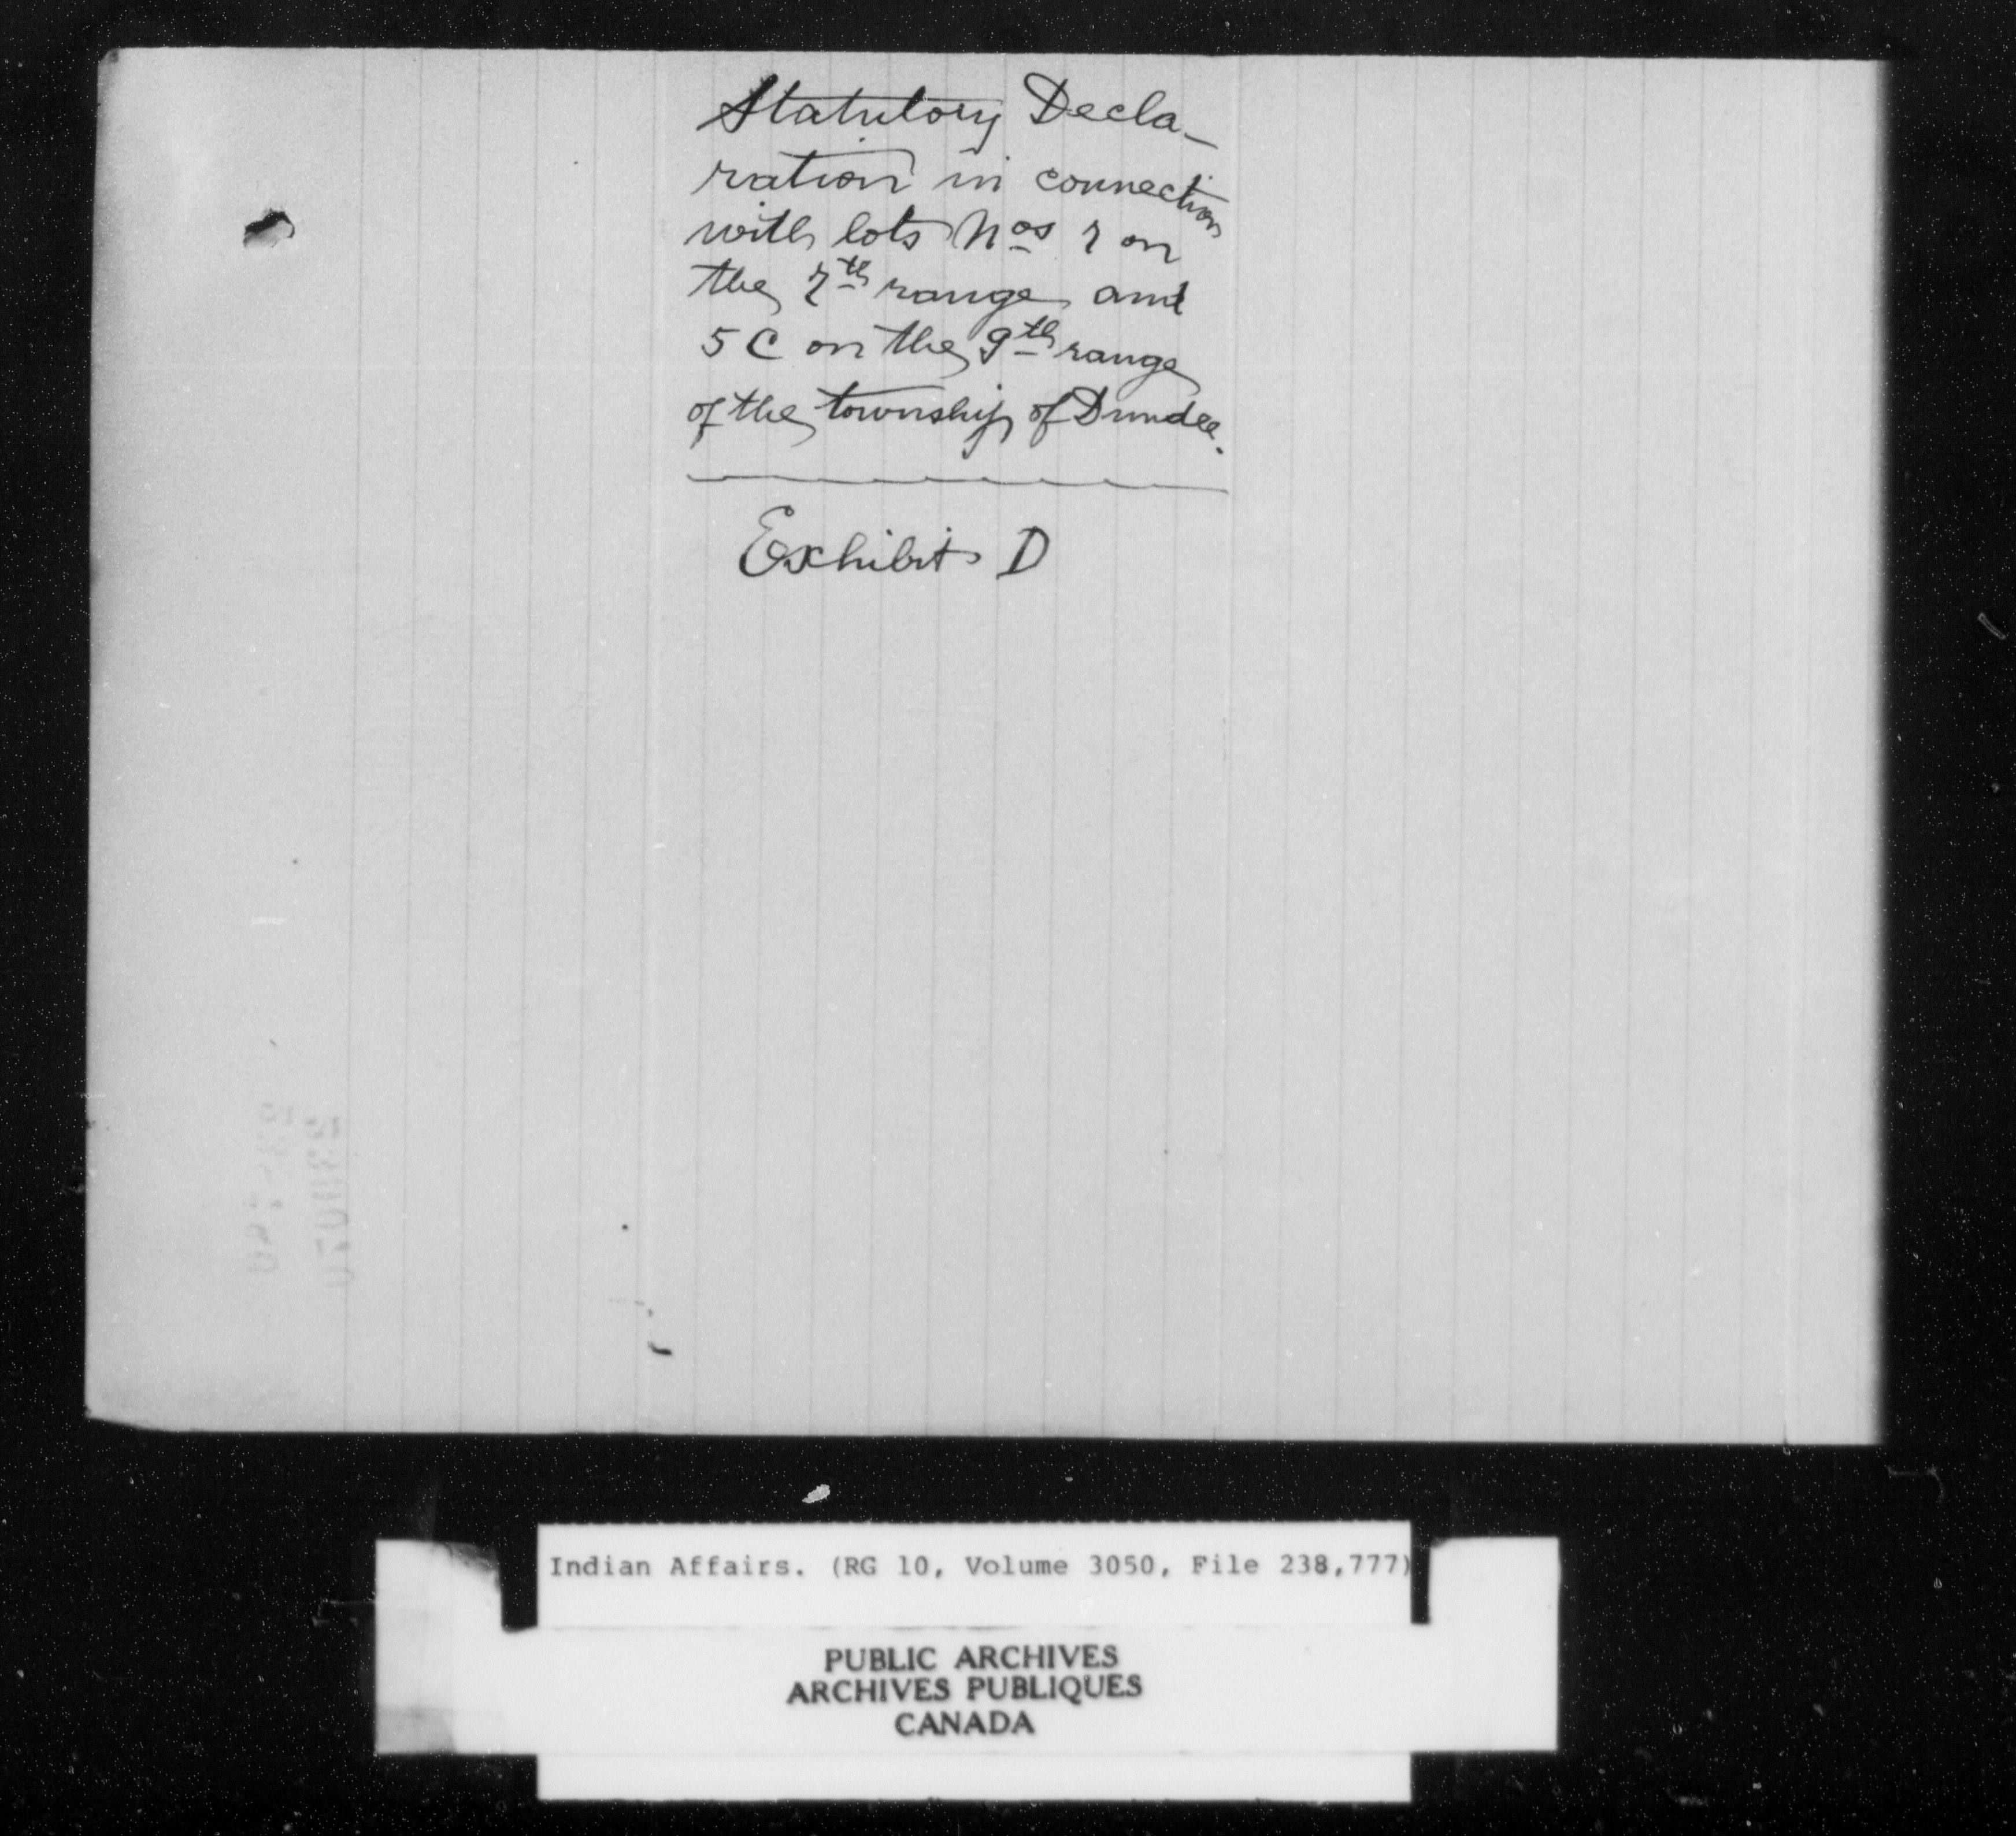 Statutory Decla-
ration in connection
with lots Nos 7 on
the 7th range and
5 C on the 9th range
of the township of Dundee.
Exhibit D
Indian Affairs. (RG 10, Volume 3050, File 238,777)
PUBLIC ARCHIVES
ARCHIVES PUBLIQUES
CANADA